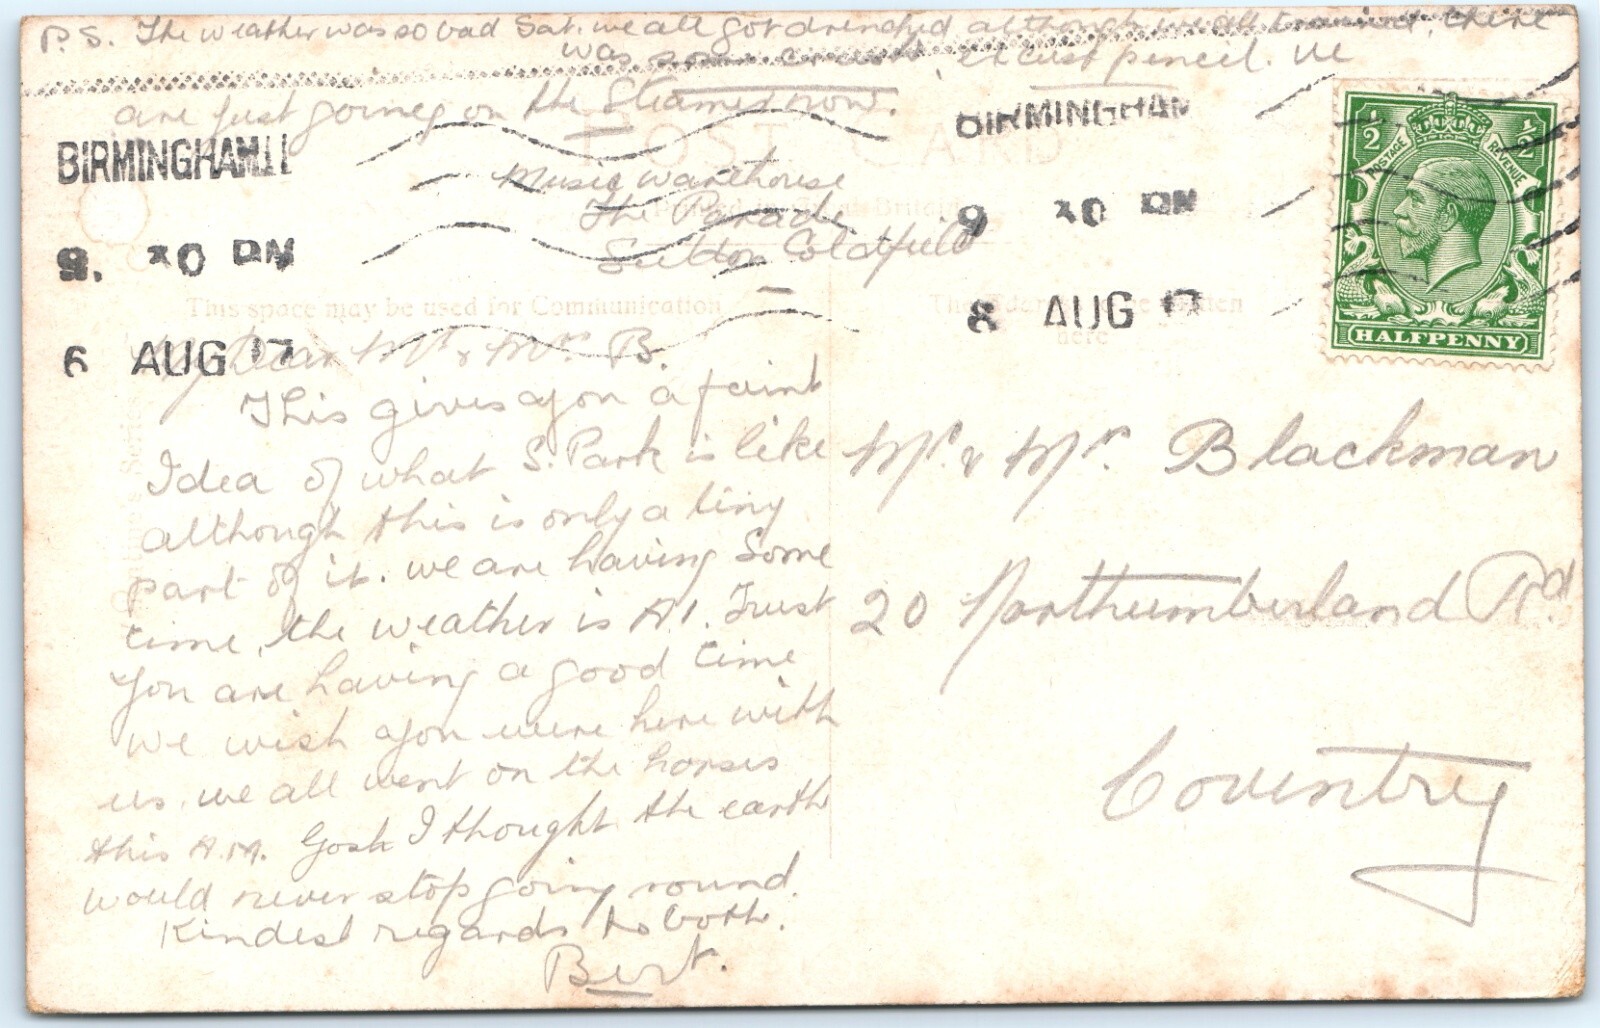 P.S. The weather was so bad Sat. we all got drenched although we all trained, there
was some crush, excuse pencil. We
are just going on the Steamer now.
POST CARD
BIRMINGHAM
9. 30 PM
6 AUG 17
BIRMINGHAM
9 30 PM
8 AUG 17
1/2 1/2
POSTAGE REVENUE
HALFPENNY
Music Warehouse
The Parade
Sutton Coldfield
This space may be used for Communication
The Address to be written
here
My Dear Mr & Mrs B.
This gives you a faint
Idea of what S. Park is like
although this is only a tiny
part of it. We are having Some
time, the weather is A1. Trust
you are having a good time
We wish you were here with
us. We all went on the horses
this A.M. Gosh I thought the earth
would never stop going round.
Kindest regards to both.
Bert.
Mr. & Mrs. Blackman
20 Northumberland Rd.
Coventry